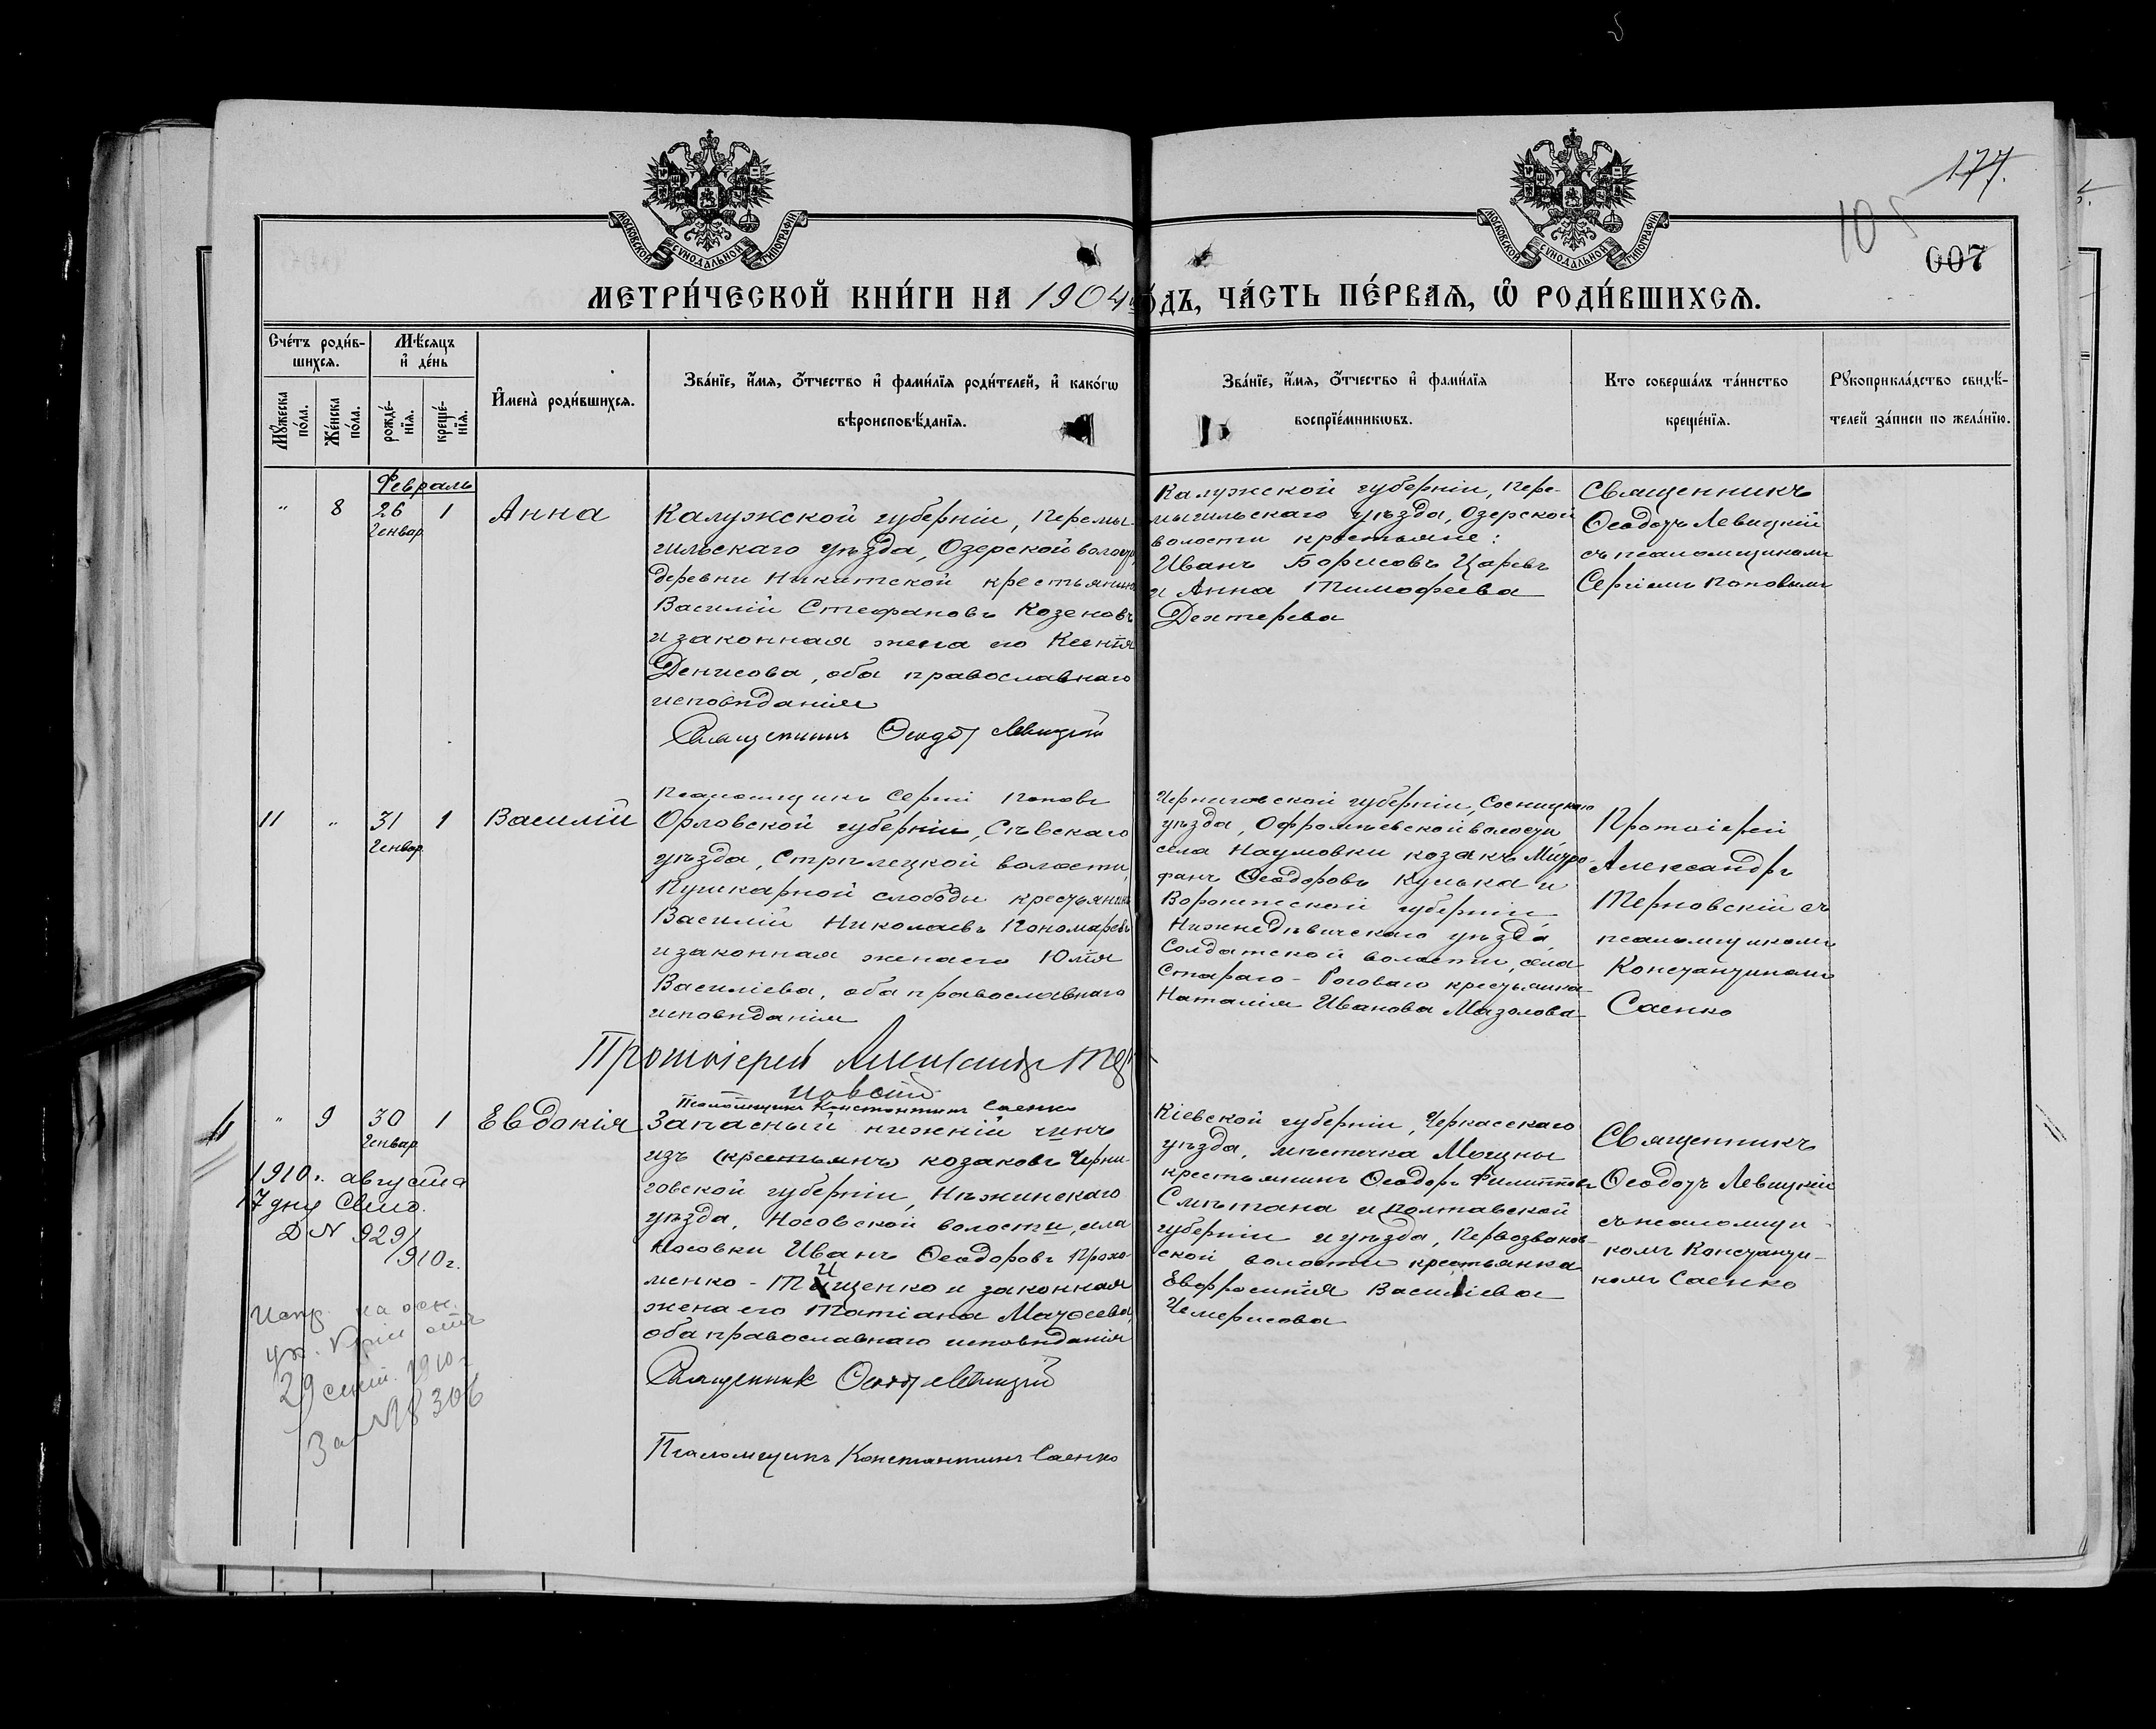 177.
105
607
МОСКОВСКОЙ СѴНОДАЛЬНОЙ ТИПОГРАФІИ
МОСКОВСКОЙ СѴНОДАЛЬНОЙ ТИПОГРАФІИ
МЕТРИ́ЧЕСКОЙ КНИ́ГИ НА 1904 го́дъ, ЧА́СТЬ ПЕ́РВАѦ, Ѽ РОДИ́ВШИХСѦ.
Сче́тъ роди́в-
шихсѧ.
Мꙋ́жеска по́ла.
Же́нска по́ла.
Мѣ́сѧцъ
и҆ де́нь
рожде́-
нїѧ.
креще́-
нїѧ.
И҆мена̀ роди́вшихсѧ.
Зва́нїе, и҆́мѧ, ѻ҆́тчество и҆ фами́лїѧ роди́телей, и҆ како́гѡ
вѣроисповѣ́данїѧ.
Зва́нїе, и҆́мѧ, ѻ҆́тчество и҆ фами́лїѧ
воспрїе́мникѡвъ.
Кто соверша́лъ та́инство
креще́нїѧ.
Рꙋкоприкла́дство свидѣ́-
телей за́писи по жела́нїю.
Февраль
" 8 26 1 Анна
Генвар.
Калужской губерніи, Перемы-
шльскаго уѣзда, Озерской волости,
деревни Никитской крестьянинъ
Василій Стефановъ Козеновъ
и законная жена его Ксенія
Денисова, оба православнаго
исповѣданія
Священникъ Ѳеодотъ Левицкій
Псаломщикъ Сергій Поповъ
Калужской губерніи, Пере-
мышльскаго уѣзда, Озерской
волости крестьяне:
Иванъ Борисовъ Царевъ
и Анна Тимофеева
Дехтерева
Священникъ
Ѳеодотъ Левицкій
съ псаломщикомъ
Сергіемъ Поповымъ
11 " 31 1 Василій
Генвар.
Орловской губерніи, Сѣвскаго
уѣзда, Стрѣлецкой волости,
Пушкарной слободы крестьянинъ
Василій Николаевъ Пономаревъ
и законная жена его Юлія
Василіева, оба православнаго
исповѣданія
Протоіерей Александръ Тер-
новскій
Псаломщикъ Константинъ Саенко
Черниговской губерніи, Сосницкаго
уѣзда, волости
села Наумовки козакъ Митро-
фанъ Ѳеодоровъ Кулька и
Воронежской губерніи
Нижнедѣвичскаго уѣзда,
Солдатской волости, села
Стараго-Роговаго крестьянка
Наталія Иванова Мазолова
Протоіерей
Александръ
Терновскій съ
псаломщикомъ
Константиномъ
Саенко
" 9 30 1 Евдокія
Генвар.
Запасный нижній чинъ
изъ (крестьянъ) козаковъ Черни-
говской губерніи, Нѣжинскаго
уѣзда, Носовской волости, села
Носовки Иванъ Ѳеодоровъ Прохо-
менко-Тищенко и законная
жена его Татіана Матѳеева,
оба православнаго исповѣданія
Священникъ Ѳеодотъ Левицкій
Псаломщикъ Константинъ Саенко
Кіевской губерніи, Черкасскаго
уѣзда, мѣстечка Мошны
крестьянинъ Ѳеодоръ Филипповъ
Смѣтана и Полтавской
губерніи и уѣзда, Первозванов-
ской волости крестьянка
Евфросинія Василіева
Чемерисова
Священникъ
Ѳеодотъ Левицкій
съ псаломщи-
комъ Константи-
номъ Саенко
1910 г. августа
17 дня
Д N 929/
1910 г.
Испр. на осн.
ук. отъ
29 1910 г.
За № 18306